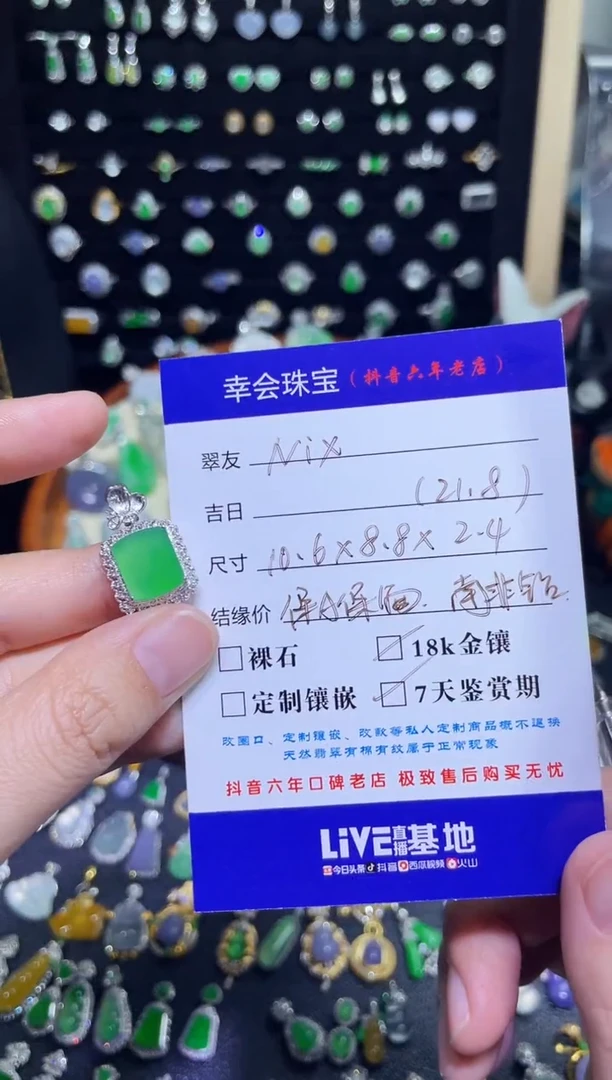 幸会珠宝（抖音六年老店）
翠友 Nix
吉日 (21.8)
尺寸 10.6×8.8×2.4
结缘价 保A保配 南非钻
裸石 18k金镶
定制镶嵌 7天鉴赏期
改圈口、定制镶嵌、改款等私人定制商品概不退换
天然翡翠有棉有纹属于正常现象
抖音六年口碑老店 极致售后购买无忧
LiVE直播基地
今日头条 抖音 西瓜视频 火山